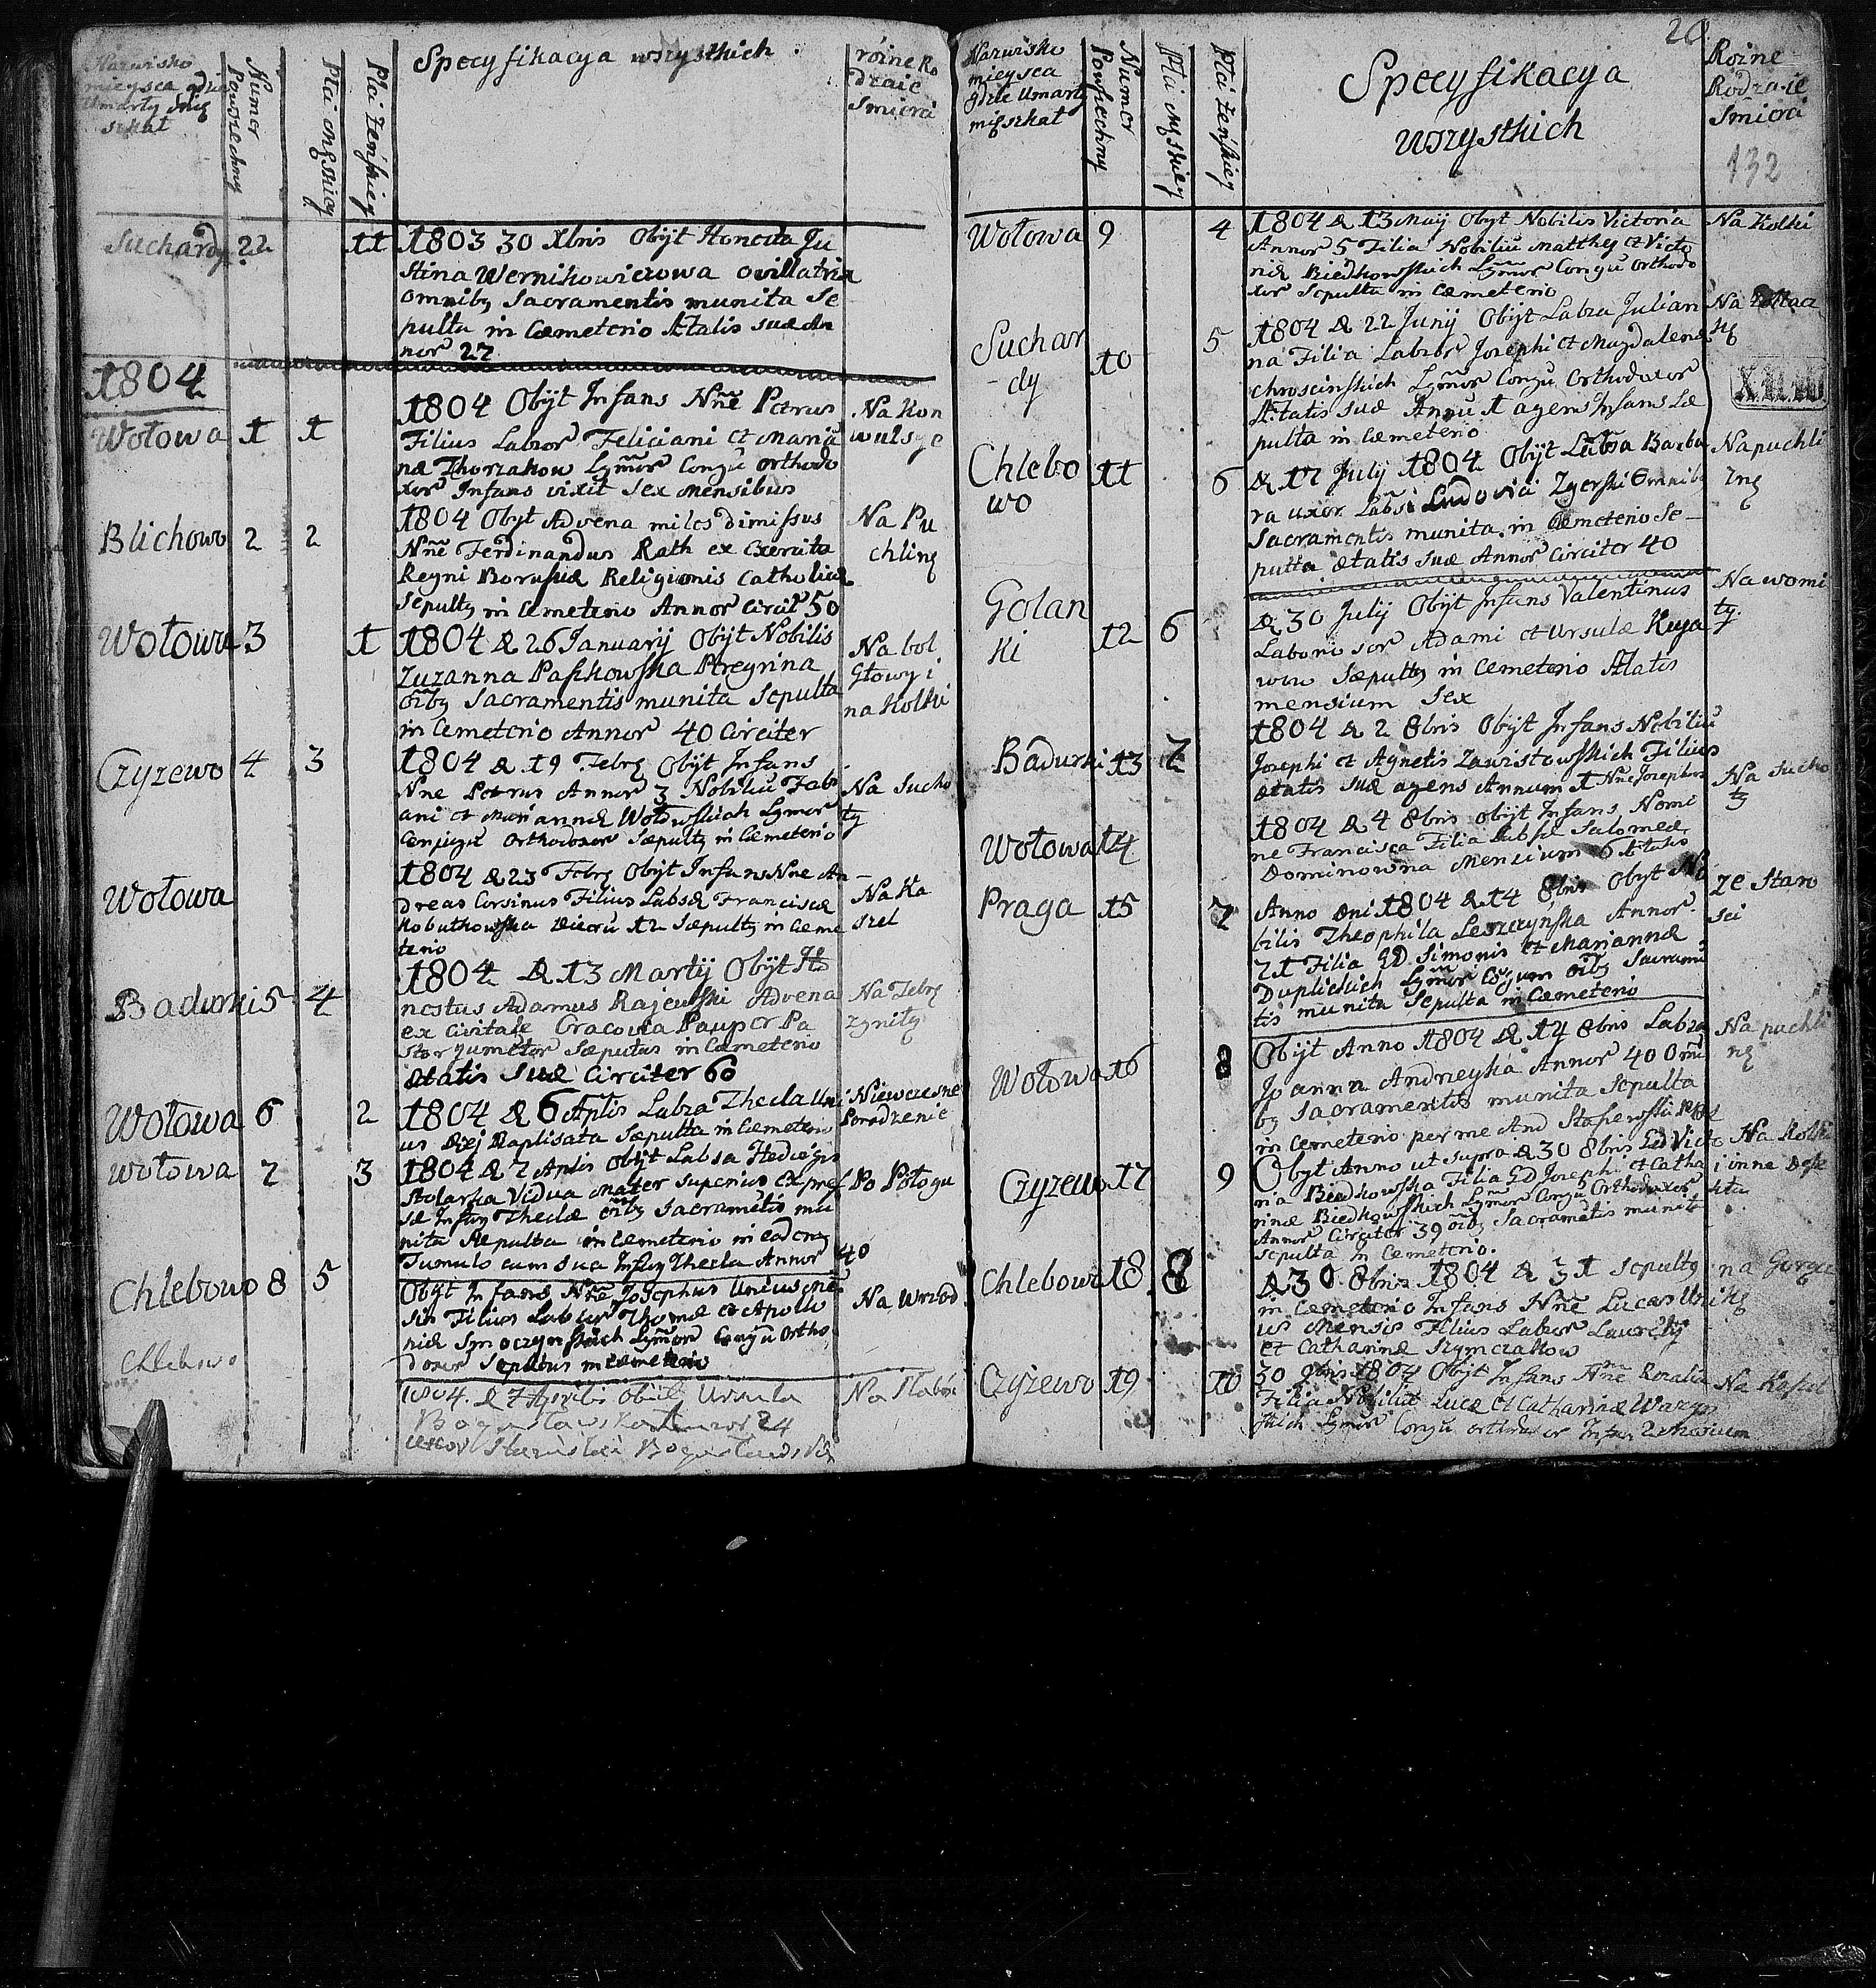 Nazwisko
mieysca gdzie
Umarły mię
szkał
Numer
Powszechny
Płci męskiey
Płci żeńskiey
Specyfikacya wszystkich
różne Ro
dzaie
Smierci
Suchardy 22 11
1803 30 Xbris Obijt Honesta Ju
stina Wernikowiczowa ovillatrix
omnibq Sacramentis munita Se
pulta in Cæmeterio Ætatis suæ An
nor 27
1804
Wołowa 1 1
1804 Obijt Infans Nñe Petrus
Filius Labror Feliciani et Mariã
næ Thorzakow Lgmõr Congũ orthodo
xor Infans vixit Sex Mensibus
Na Kon
wulsye
Blichowo 2 2
1804 Obyt Advena miles dimissus
Nñe Ferdinandus Rath ex Exercitu
Regni Borussiæ Religionis Catholicæ
Sepultq in Cemeterio Annor Circit 50
Na Pu
chling
Wołowa 3 1
1804 & 26 Januarij Obijt Nobilis
Zuzanna Paszkowska Peregrina
oibq Sacramentis munita Sepulta
in Cemeterio Annor 40 Circiter
Na bol
Głowy i
na Kolki
Czyzewo 4 3
1804 & 19 Febrq Obijt Infans
Nne Petrus Annor 3 Nobiliũ Fabi
ani et Mariannæ Wołowskich Lgmor
Conjugũ Orthodoxor Sæpultq in Cæmeterio
Na Sucho
ty
Wołowa
1804 & 23 Febrq Obijt Infans Nne An
dreas Corsinus Filius Labsæ Franciscæ
Kobutkowska Dierũ 12 Sæpultq in Ceme
terio
Na Ka
szel
Badurki 5 4
1804 & 13 Martij Obijt Ho
nestus Adamus Rajewski Advena
ex Civitate Cracovia Pauper Pa
stor Jumetor Sæpultus in Cæmeterio
ætatis Suæ Circiter 60
Na Febrq
zgniłą
Wołowa 6 2
1804 & 6 Aplis Labza Thecla Uni
us Diej Baptisata Sæpulta in Cæmeterio
Niewczesne
Porodzenie
Wołowa 7 3
1804 & 7 Aplis Obijt Labsa Hedvigis
Stolarka Vidua Mater Superius Expres
sæ Infnq Theclæ oibq Sacrametis mu
nita Sepulta in Cæmeterio in eodemq
Tumulo cum Sua Infnq Thecla Annor 40
Po Połogu
Chlebowo 8 5
Obijt Infans Nñe Josephus Unius Mẽ
sis Filius Labror Thomæ et Apollo
niæ Smoczynskich Lgmor Congũ Ortho
doxor Sepultus in Cæmeterio
Na Wrzod
Chlebowo
1804. & 7 Aprilis Obiit Ursula
Bogusławska Annor 24
uxor Stanislai Bogusławski
Na Słaboś
20
Nazwisko
mieysca
gdzie Umarły
mięszkał
Numer
Powszechny
Płci męskiey
Płci żeńskiey
Specyfikacya
wszystkich
Rożne
Rodzaie
Smierci
132
Wołowa 9 4
1804 & 13 Maij Obijt Nobilis Victoria
Annor 5 Filia Nobiliũ Matthej et Victo
riæ Biedkowskich Lgmõr Congũ Orthodo
xor Sepulta in Cæmeterio
Na Kolki
Suchar
-dy 10 5
1804 & 22 Junij Obijt Labza Julian
na Filia Labror Josephi et Magdalenæ
Chroscinskich Lgmõr Congũ Orthodoxor
Ætatis suæ Annũ 1 agens Infans Se
pulta in Cæmeterio
Chlebo
wo 11 6
& 17 July 1804 Obijt Labsa Barba
ra uxor Labsi Ludovici Zgerski Omnibq
Sacramentis munita in Cæmeterio Se
pulta ætatis suæ Annor Circiter 40
Napuchli
zng
Golan
ki 12 6
& 30 Julij Obijt Infans Valentinus
Laborio sor Adami et Ursulæ Kuja
wow Sæpultq in Cemeterio Ætatis
mensium Sex
Na womi
ty
Badurki 13 7
1804 & 2 8bris Obijt Infans Nobiliũ
Josephi et Agnetis Zawistowskich Filius
ætatis suæ agens Annum 1 Nñe Josephus
Na Sucho
ty
Wołowa 14
1804 & 4 8bris obijt Infans Nomi
ne Francisca Filia Labsæ Salomeæ
Dominowna Mensium 6 Ætatis
Praga 15 7
Anno Dni 1804 & 14 8bris Obyt No
bilis Theophila Leszczyńska Annor
71 Filia GD Simonis et Mariannæ
Duplickich Lgmõr Cõgum oibq Sacramẽ
tis munita Sepulta in Cæmeterio
ze Staro
sci
Wołowa 16 8
Obijt Anno 1804 & 14 8bris Labza
Joanna Andreyka Annor 40 Omi
bq Sacramentis munita Sepulta
in Cemeterio per me And
Na puchli
ng
Czyzewo 17 9
Obyt Anno ut supra & 30 8bris GD Victo
ria Biedkowska Filia GD Josephi et Catha
rinæ Biedkowskich Lgmor Congũ Orthodoxor
Annor Circiter 39 oibq Sacrametis munit
Sepulta in Cemeterio.
Na Kolki
i inne Defe
kta
Chlebowo 18 8
& 30 8bris 1804 & 31 Sepultq
in Cæmeterio Infans Nñe Lucas Uni
us Mensis Filius Labror Laurẽtij
et Catharinæ Szymczakow
na Gorącz
kę
Czyżewo 19 10
30 9bris 1804 Obijt Infans Nñe Rosalia
Filia Nobiliũ Lucæ et Catharinæ Waryn
skich Lgmor Congũ orthodoxor Infans 2 Mensium
Na Kaszel